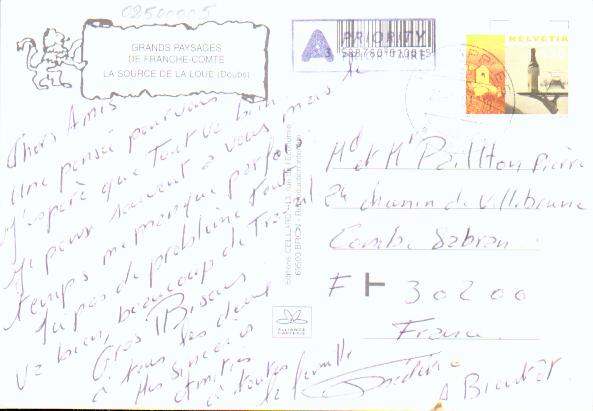 02500005
GRANDS PAYSAGES
DE FRANCHE-COMTE
LA SOURCE DE LA LOUE (Doubs)
A PRIORITY
HELVETIA
Chers Amis
Une pensée pour vous
J'espère que tout va bien
Je pense souvent a vous mais le
temps me manque parfois
Ici pas de problème tout
va bien, beaucoup de Travail
Gros Bisous
à tous les deux
Mes sincères
Amitiés
à toutes
la famille
A Bientôt.
Editions CELLARD
69500 BRON - Reproduction interdite
ALLIANCE
CARTERIE
Md et Mr Paillton Pierre
24 chemin de Villebrune
Combe Sabran
F - 30200
France